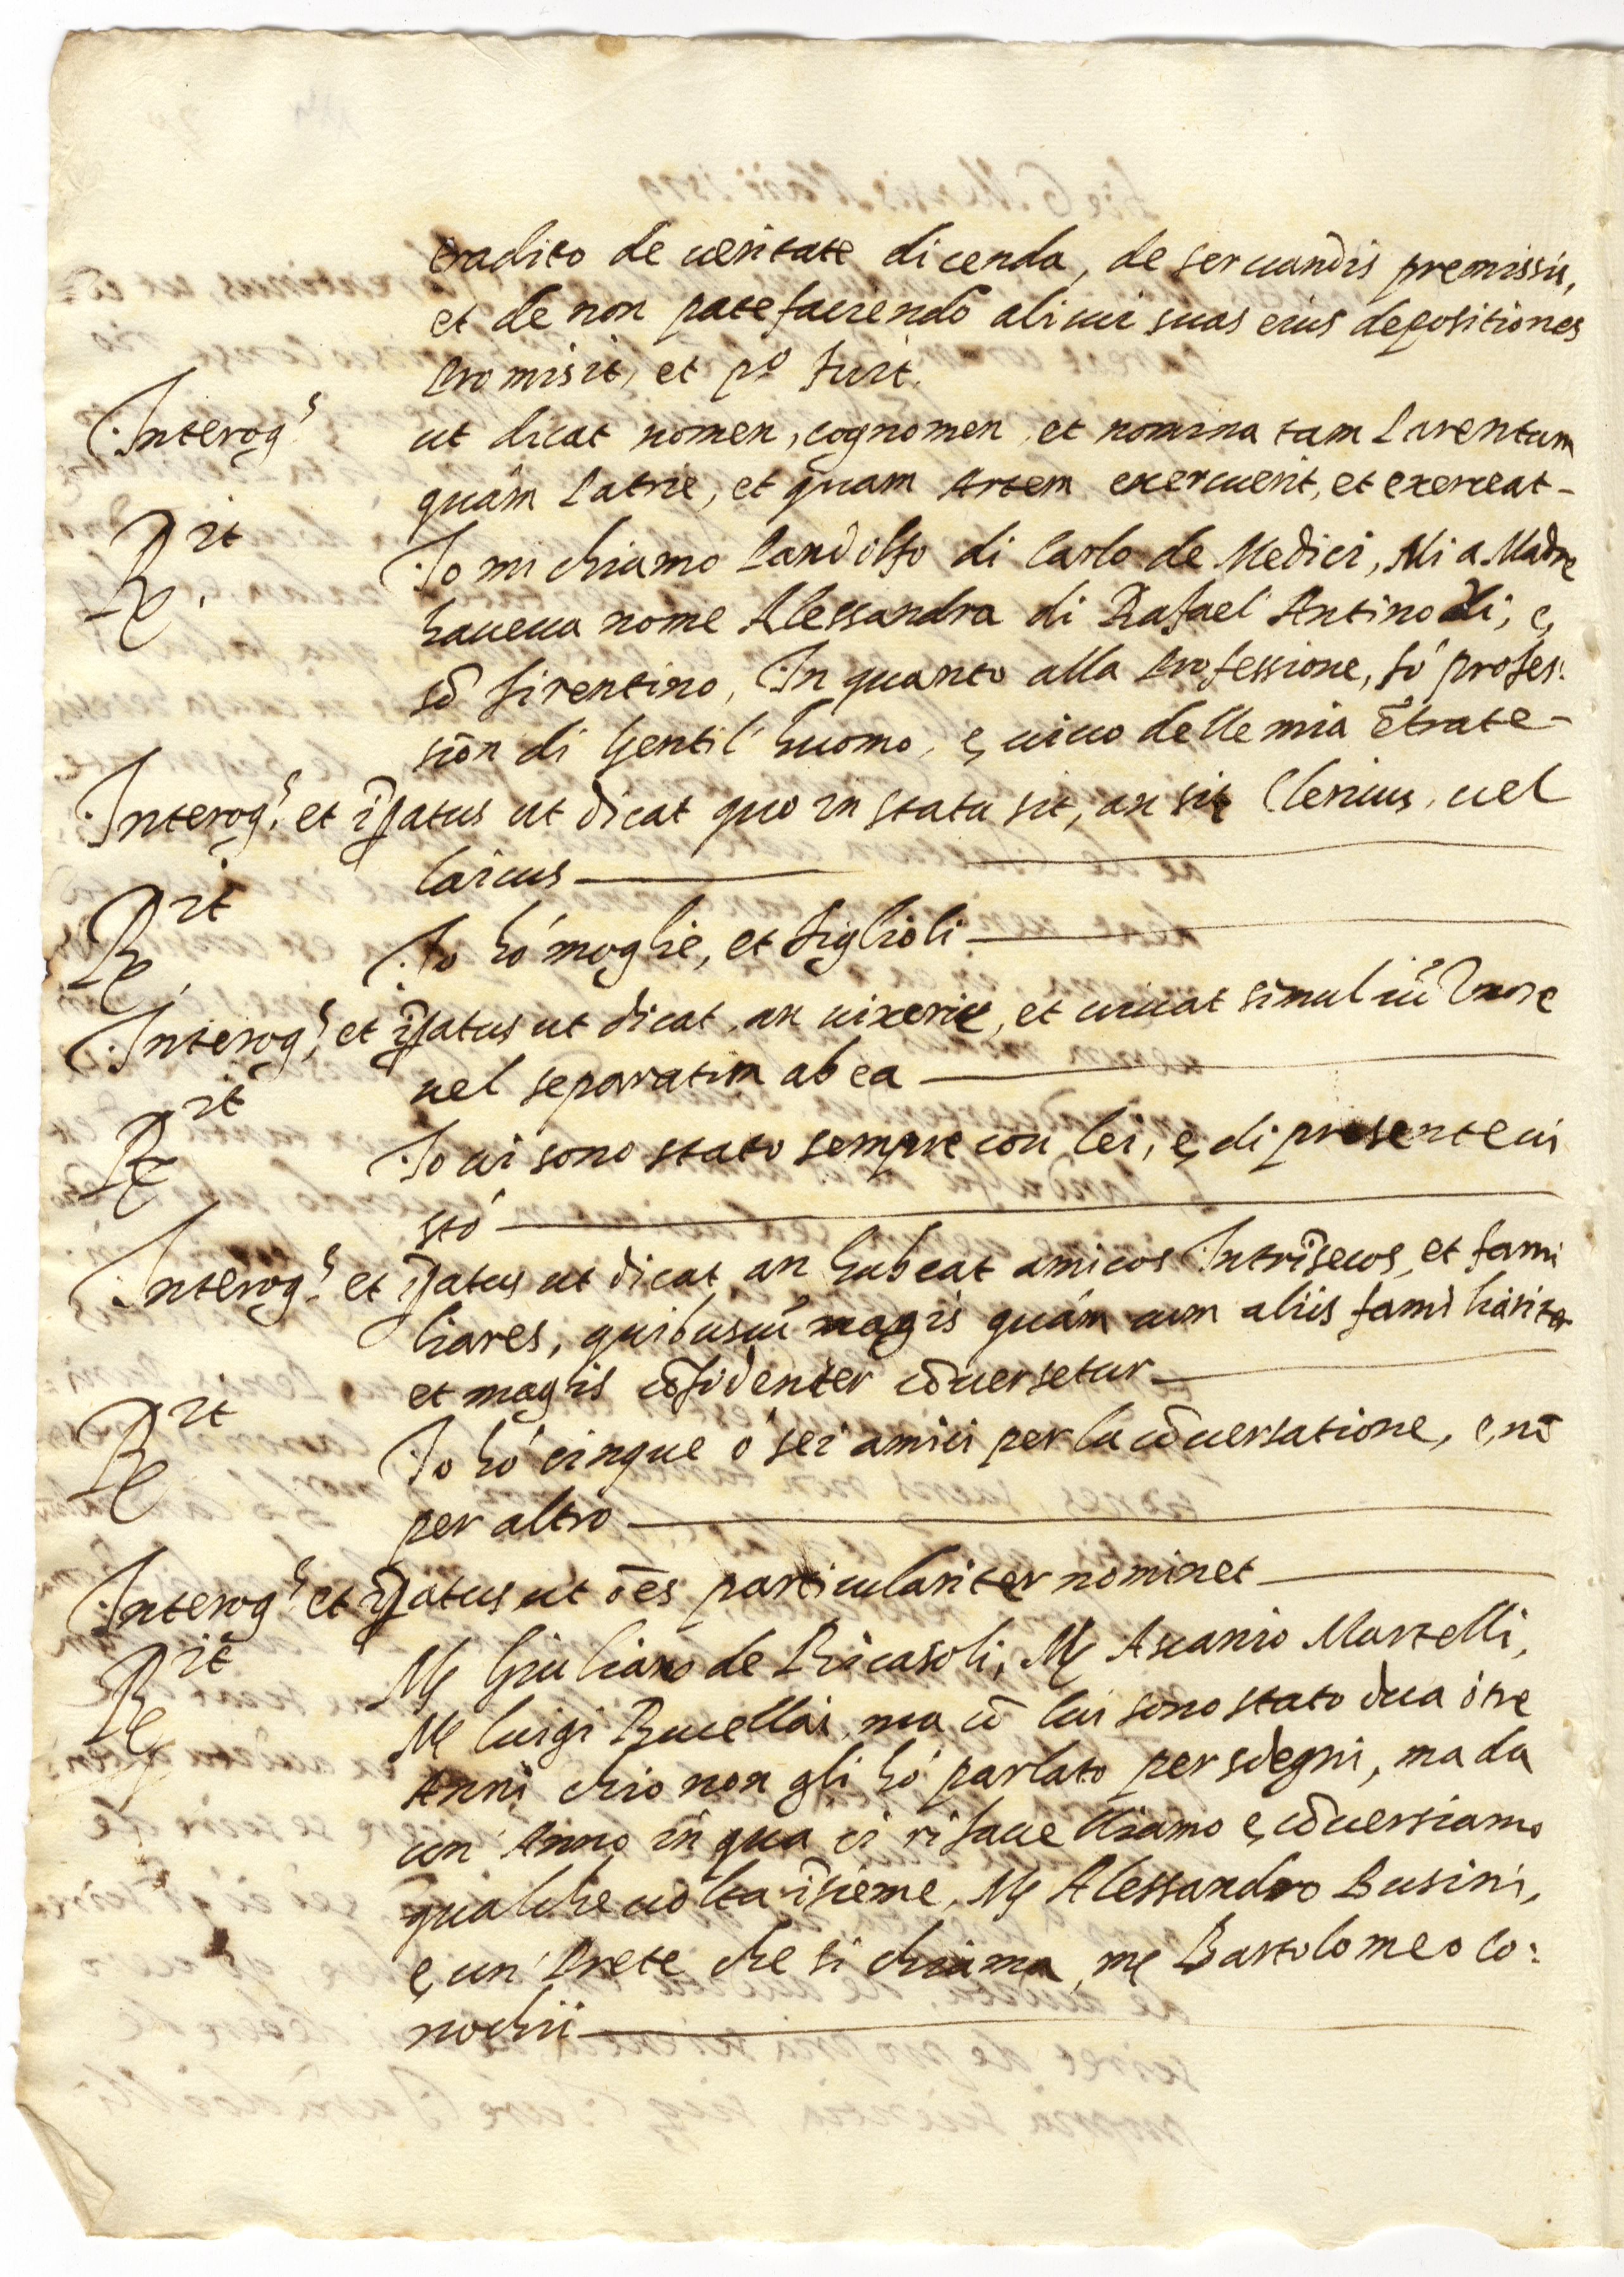 tradito de ueritate dicenda, de seruandis premissis,
et de non patefaciendo alicui suas eius depositiones
Promisit, et p^o Iurit.
Interog^s ut dicat nomen, cognomen et nomina tam Parentum
quàm Patrie, et quam Artem exercuerit, et exerceat -
R^it Io mi chiamo Pandolfo di Carlo de Medici, Mia Madre
haueua nome Alessandra di Rafael Antinori; e,
sō firentino, In quanto alla professione, fò profes:
siōn di Gentil'huomo, e, uiuo delle mia ētrate -
Interog^s et īpatus ut dicat quo in statu sit, an sit Clericus, uel
laicus
R^it Io hò moglie, et figlioli
Interog^s et īpatus ut dicat, an uixerit, et uiuat simul cū Vxore
uel separatim ab ea
R^it Io ui sono stato sempre con lei, e, di presente ui
stò
Interog^s et īpatus ut dicat an habeat amicos Intrīsecos, et fami
liares, quibuscū magis quàm cum aliis familiariter
et magis cōfidenter cōuersetur
R^it Io hò cinque ò sei amici per la cōuersatione, e, nō
per altro
Interog^s et īpatus ut ōēs particulariter nominet
R^it M^s Giuliano de Ricasoli, M^s Ascanio Martelli,
M^s Luigi Rucellai, ma cō lui sono stato dua ò tre
Anni chio non gli hò parlato per sdegni, ma da
un' Anno in qua ci rifauelliamo e, cōuersiamo
qualche uolta īsieme, M^s Alessandro Busini,
e, un' Prete che si chiama m^s Bartolomeo Co:
nochii